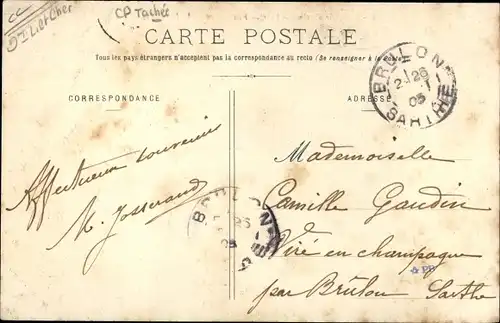 CC
Dt L. et Cher
CP Tachée
CARTE POSTALE
Tous les pays étrangers n'acceptent pas la correspondance au recto (Se renseigner à la Poste)
CORRESPONDANCE
ADRESSE
BRULON
26
05
SARTHE
Affectueux souvenir
M. Josserand
BRULON
Mademoiselle
Camille Gaudin
Viré en champagne
par Brûlon Sarthe